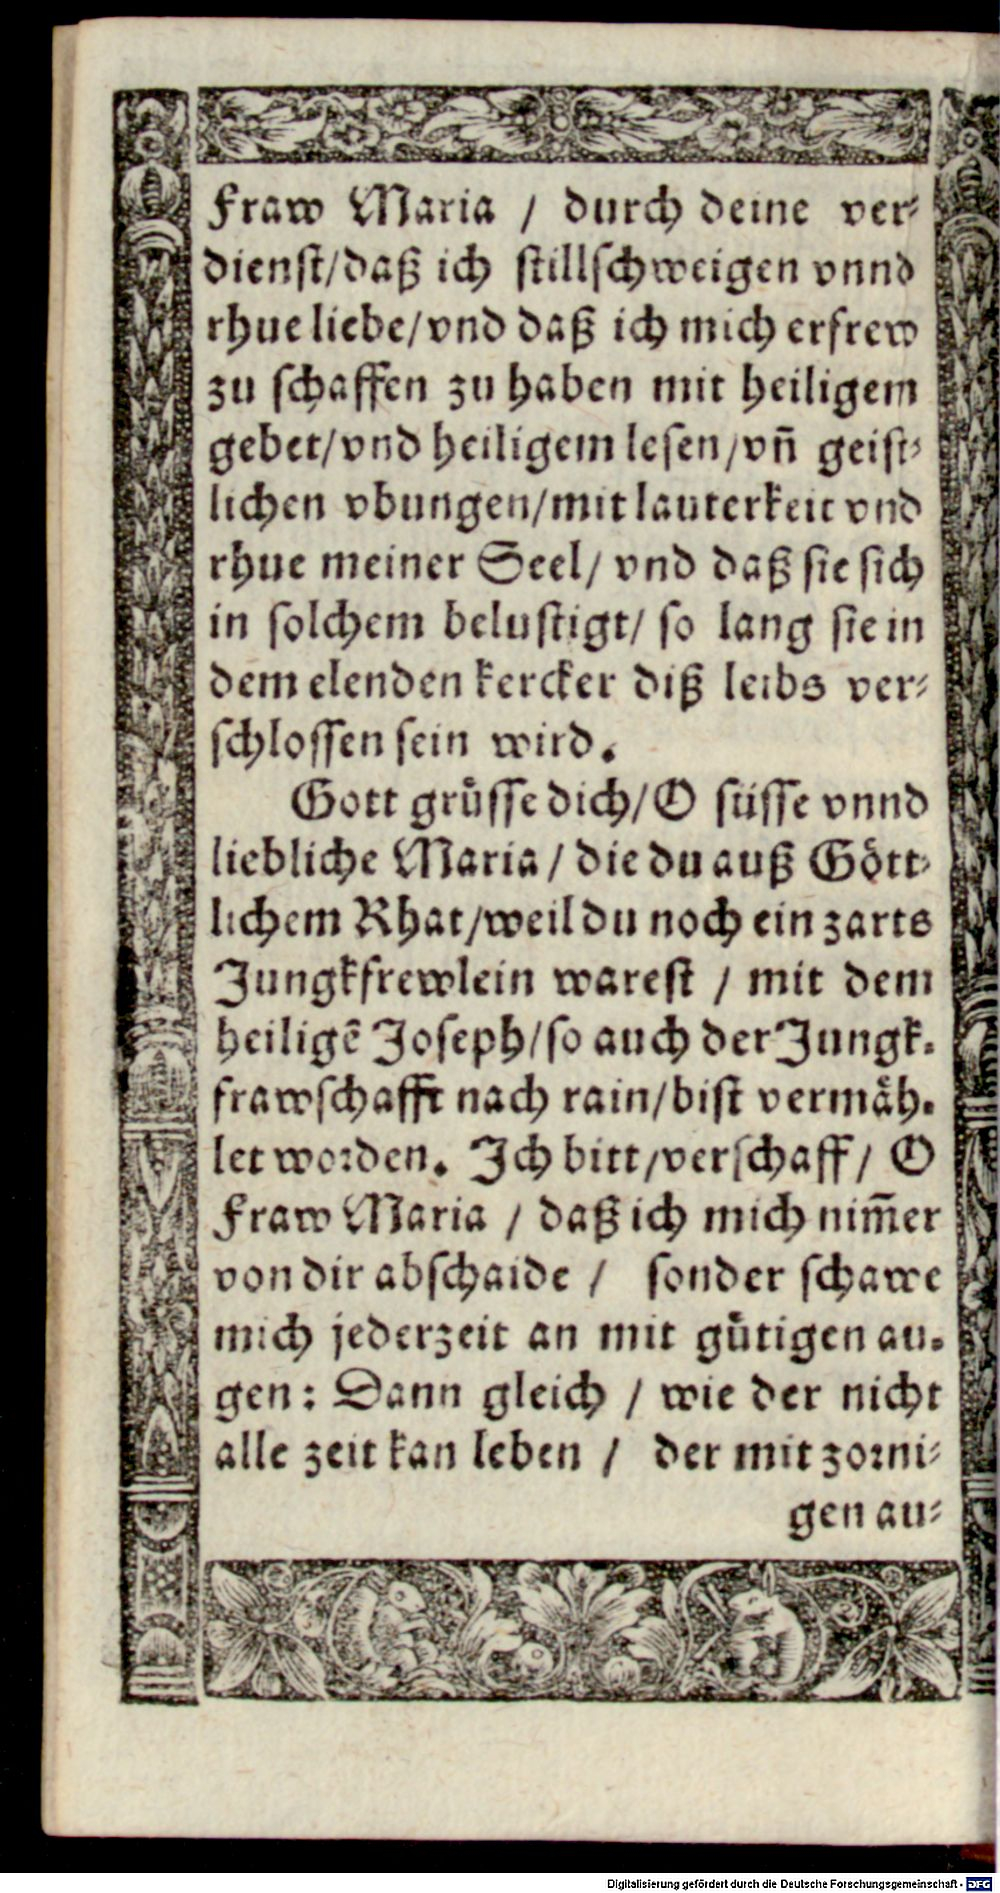 Fraw Maria / durch deine ver⸗
dienst/daß ich stillschweigen vnnd
rhue liebe/vnd daß ich mich erfrew
zu schaffen zu haben mit heiligem
gebet/vnd heiligem lesen/vn̄ geist⸗
lichen vbungen/mit lauterkeit vnd
rhue meiner Seel/ vnd daß sie sich
in solchem belustigt/ so lang sie in
dem elenden kercker diß leibs ver⸗
schlossen sein wird.
Gott grüsse dich/O süsse vnnd
liebliche Maria / die du auß Gött⸗
lichem Rhat/weil du noch ein zarts
Jungkfrewlein warest / mit dem
heiligē Joseph/so auch der Jungk.
frawschafft nach rain/bist vermäh.
let worden. Ich bitt/verschaff/ O
Fraw Maria / daß ich mich nim̄er
von dir abschaide / sonder schawe
mich jederzeit an mit gütigen au.
gen: Dann gleich / wie der nicht
alle zeit kan leben / der mit zorni⸗
gen au⸗
Digitalisierung gefördert durch die Deutsche Forschungsgemeinschaft - DFG